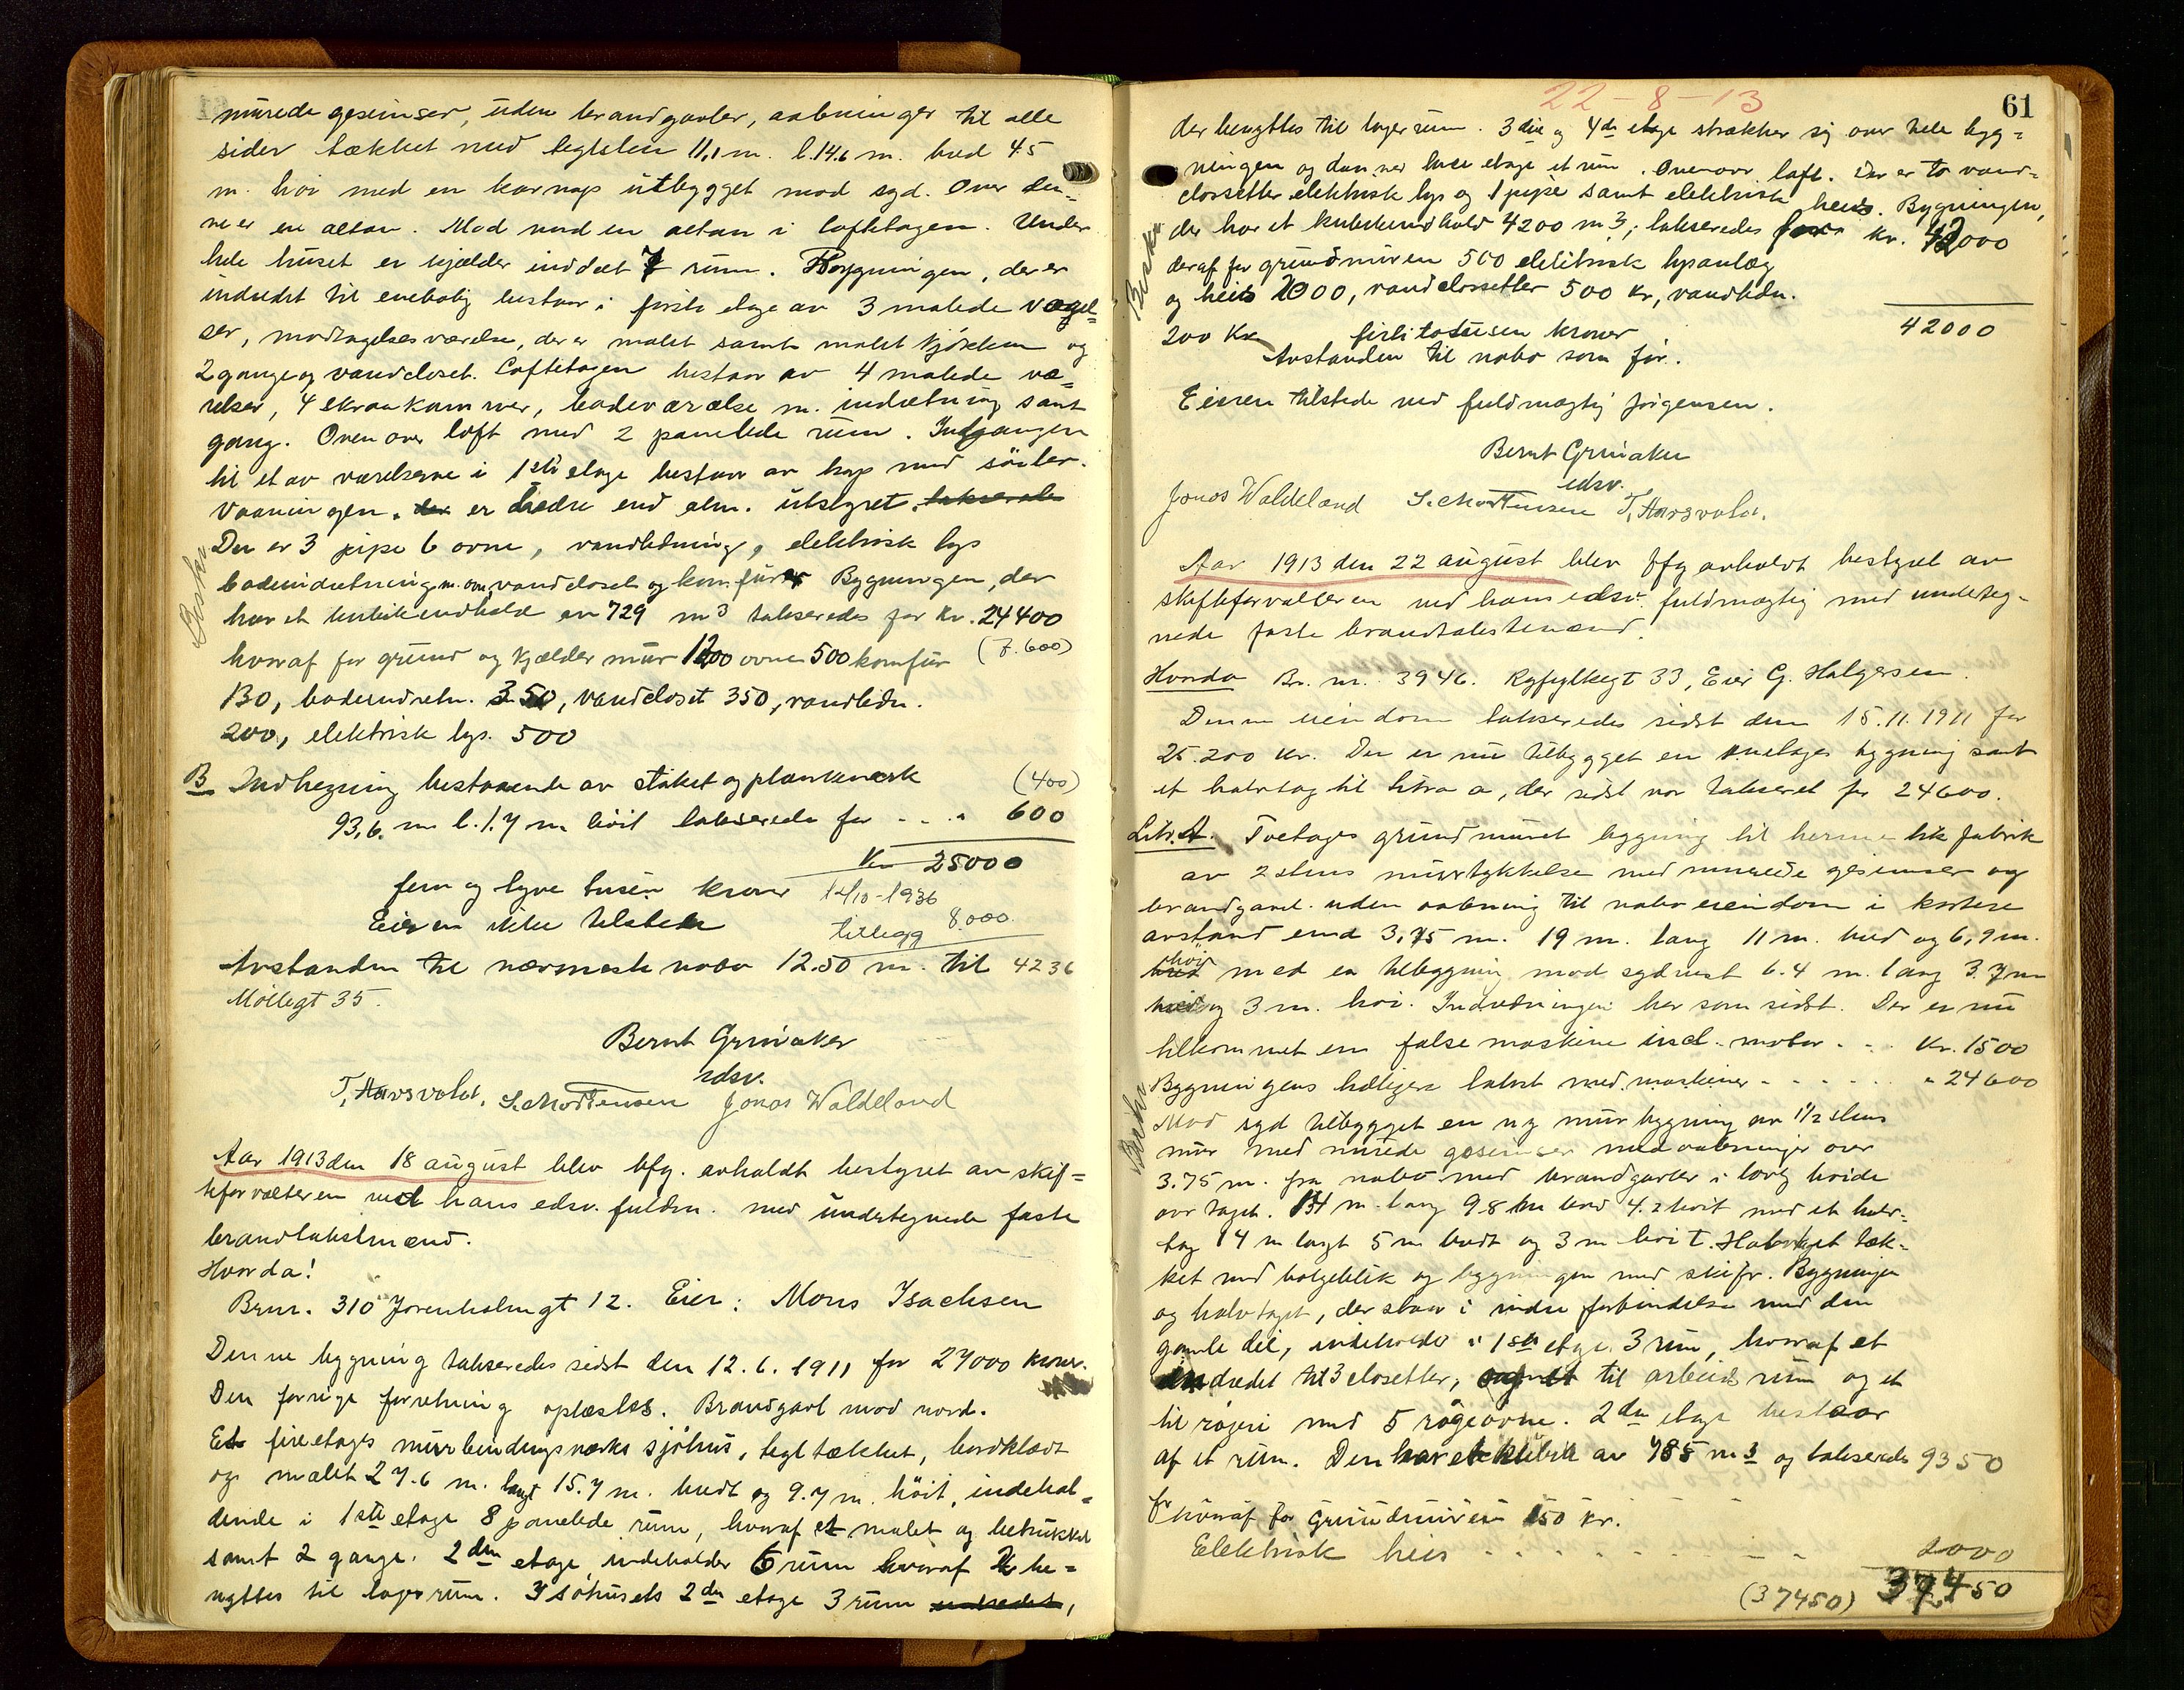 murede gesimser, uden brandgavler, aabninger til alle
sider tækket med teglsten 11,1 m. l. 14.6 m. bred 4.5
m. høi med en karnap utbygget mod syd. Over den=
ne er en altan. Mod nord en altan i loftetagen. Under
hele huset er kjælder inddelt 7 rum. Bygningen, der er
indredet til enebolig bestaar i første etage av 3 malede værel=
ser, modtagelsesværelse, der er malet samt malet kjøkken og
2 gange og vandcloset. Loftetagen bestaar av 4 malede væ=
relser, 4 skraakammer, badeværelse m. indretning samt
gang. Ovenover loft med 2 panelede rum. Indgangen
til et av værelserne i 1ste etage bestaar av trap med söiler.
Vaaningen, der er bedre end alm. utstyret, takseredes
Der er 3 pipe 6 ovne, vandledning, elektrisk lys
badeindretning m. ovn, vandcloset og komfur Bygningen, der
har et kubikindhold av 729 m3 takseredes for Kr. 24400
hvoraf for grund og kjælder mur 1200 ovne 500 komfur (7.600)
130, badeindretn. 350, vandcloset 350, vandledn.
200, elektrisk lys. 500
B Indhegning bestaaende av stakit og plankeværk (400)
93,6 m l. 1.7 m høit takseredes for - - " 600
Kr 25000
fem og tyve tusen kroner 14/10-1936
Eieren ikke tilstede tillegg 8.000
Avstanden til nærmeste nabo 12.50 m. til 4236
Møllegt 35.
Bernt Grunaker
edsv.
T. Aarsvold. S. Mortensen Jonas Waldeland
Aar 1913 den 18 august blev bfg. avholdt bestyret av skif=
teforvalteren ved hans edsv. fuldm. med undertegnede faste
brandtakstmænd.
Hvorda!
Brnr. 310 Jorenholmgt 12. Eier: Mons Isachsen
Denne bygning takseredes sidst den 12.6.1911 for 27000 kroner.
Den forrige forretning oplæstes. Brandgavl mod nord.
Et fireetages murbindingsverks sjöhus, tegltækket, bordklædt
og malet 27.6 m. langt 15.7 m. bredt og 9.7 m. höit, indehol=
dende i 1ste etage 8 panelede rum, hvoraf et malet og betrukket
samt 2 gange. 2den etage indeholder 6 rum hvoraf 2 be=
nyttes til lagerrum. I söhusets 2den etage 3 rum indredet,
61
22-8-13
der benyttes til lagerrum. 3die og 4de etage strækker sig over hele byg=
ningen og danner hver etage et rum. Ovenover loft. Der er to vand=
closetter elektriske lys og 1 pipe samt elektrisk heis. Bygningen,
der har et kubikindhold 4200 m3, takseredes for kr. 42000
deraf for grundmuren 500 elektrisk lysanlæg
og heis 2000, vandclosetter 500 Kr, vandledn.
200 Kr 42000
firti to tusen kroner
Avstanden til nabo som før.
Eieren tilstede ved fuldmægtig Jørgensen.
Bernt Grunaker
edsv.
Jonas Waldeland S. Mortensen T. Aarsvold.
Aar 1913 den 22 august blev bfg avholdt bestyret av
skifteforvalteren ved hans edsv. fuldmægtig med underteg-
nede faste brandtakstmænd.
Hvorda Br. nr. 3946. Ryfylkegt 33, Eier G. Halgersen.
Denne eiendom takseredes sidst den 15.11.1911 for
25.200 kr. Der er nu tilbygget en enetages bygning samt
et halvtag til litra a, der sidst var takseret for 24600.
Litr. A. Toetages grundmuret bygning til hermetikfabrik
av 2 stens murtykkelse med murede gesimser og
brandgavl uden aabning til nabo eiendom i kortere
avstand end 3,75 m. 19 m. lang 11 m. bred og 6,9 m.
høi med en tilbygning mod sydvest 6.4 m. lang 3.7 m
bred og 3 m. høi. Indredningen her som sidst. Der er nu
tilkommet en falsemaskine incl. motor - - Kr. 1500
Bygningens tidligere takst med maskiner - - - - " 24600
Mod syd tilbygget en ny mur bygning av 1½ stens
mur med murede gesimser med aabninger over
3.75 m. fra nabo med brandgavler i lovlig høide
over taget. 14 m. lang 9.8 m bred 4.2 høit med et halv=
tag 14 m langt 5 m bredt og 3 m høit. Halvtaget tæk-
ket med bølgeblik og bygningen med skifer. Bygningen
og halvtaget, der staar i indre forbindelse med den
gamle del, indeholder i 1ste etage 3 rum, hvoraf et
indredet til 3 closetter, et til arbeidsrum og et
til røgeri med 5 røgeovne. 2den etage bestaar
af et rum. Den har et kubik av 785 m3 og takseredes 9350
for hvoraf for grundmuren 150 kr.
Elektrisk heis - - - - - - 2000
(37450) 37450